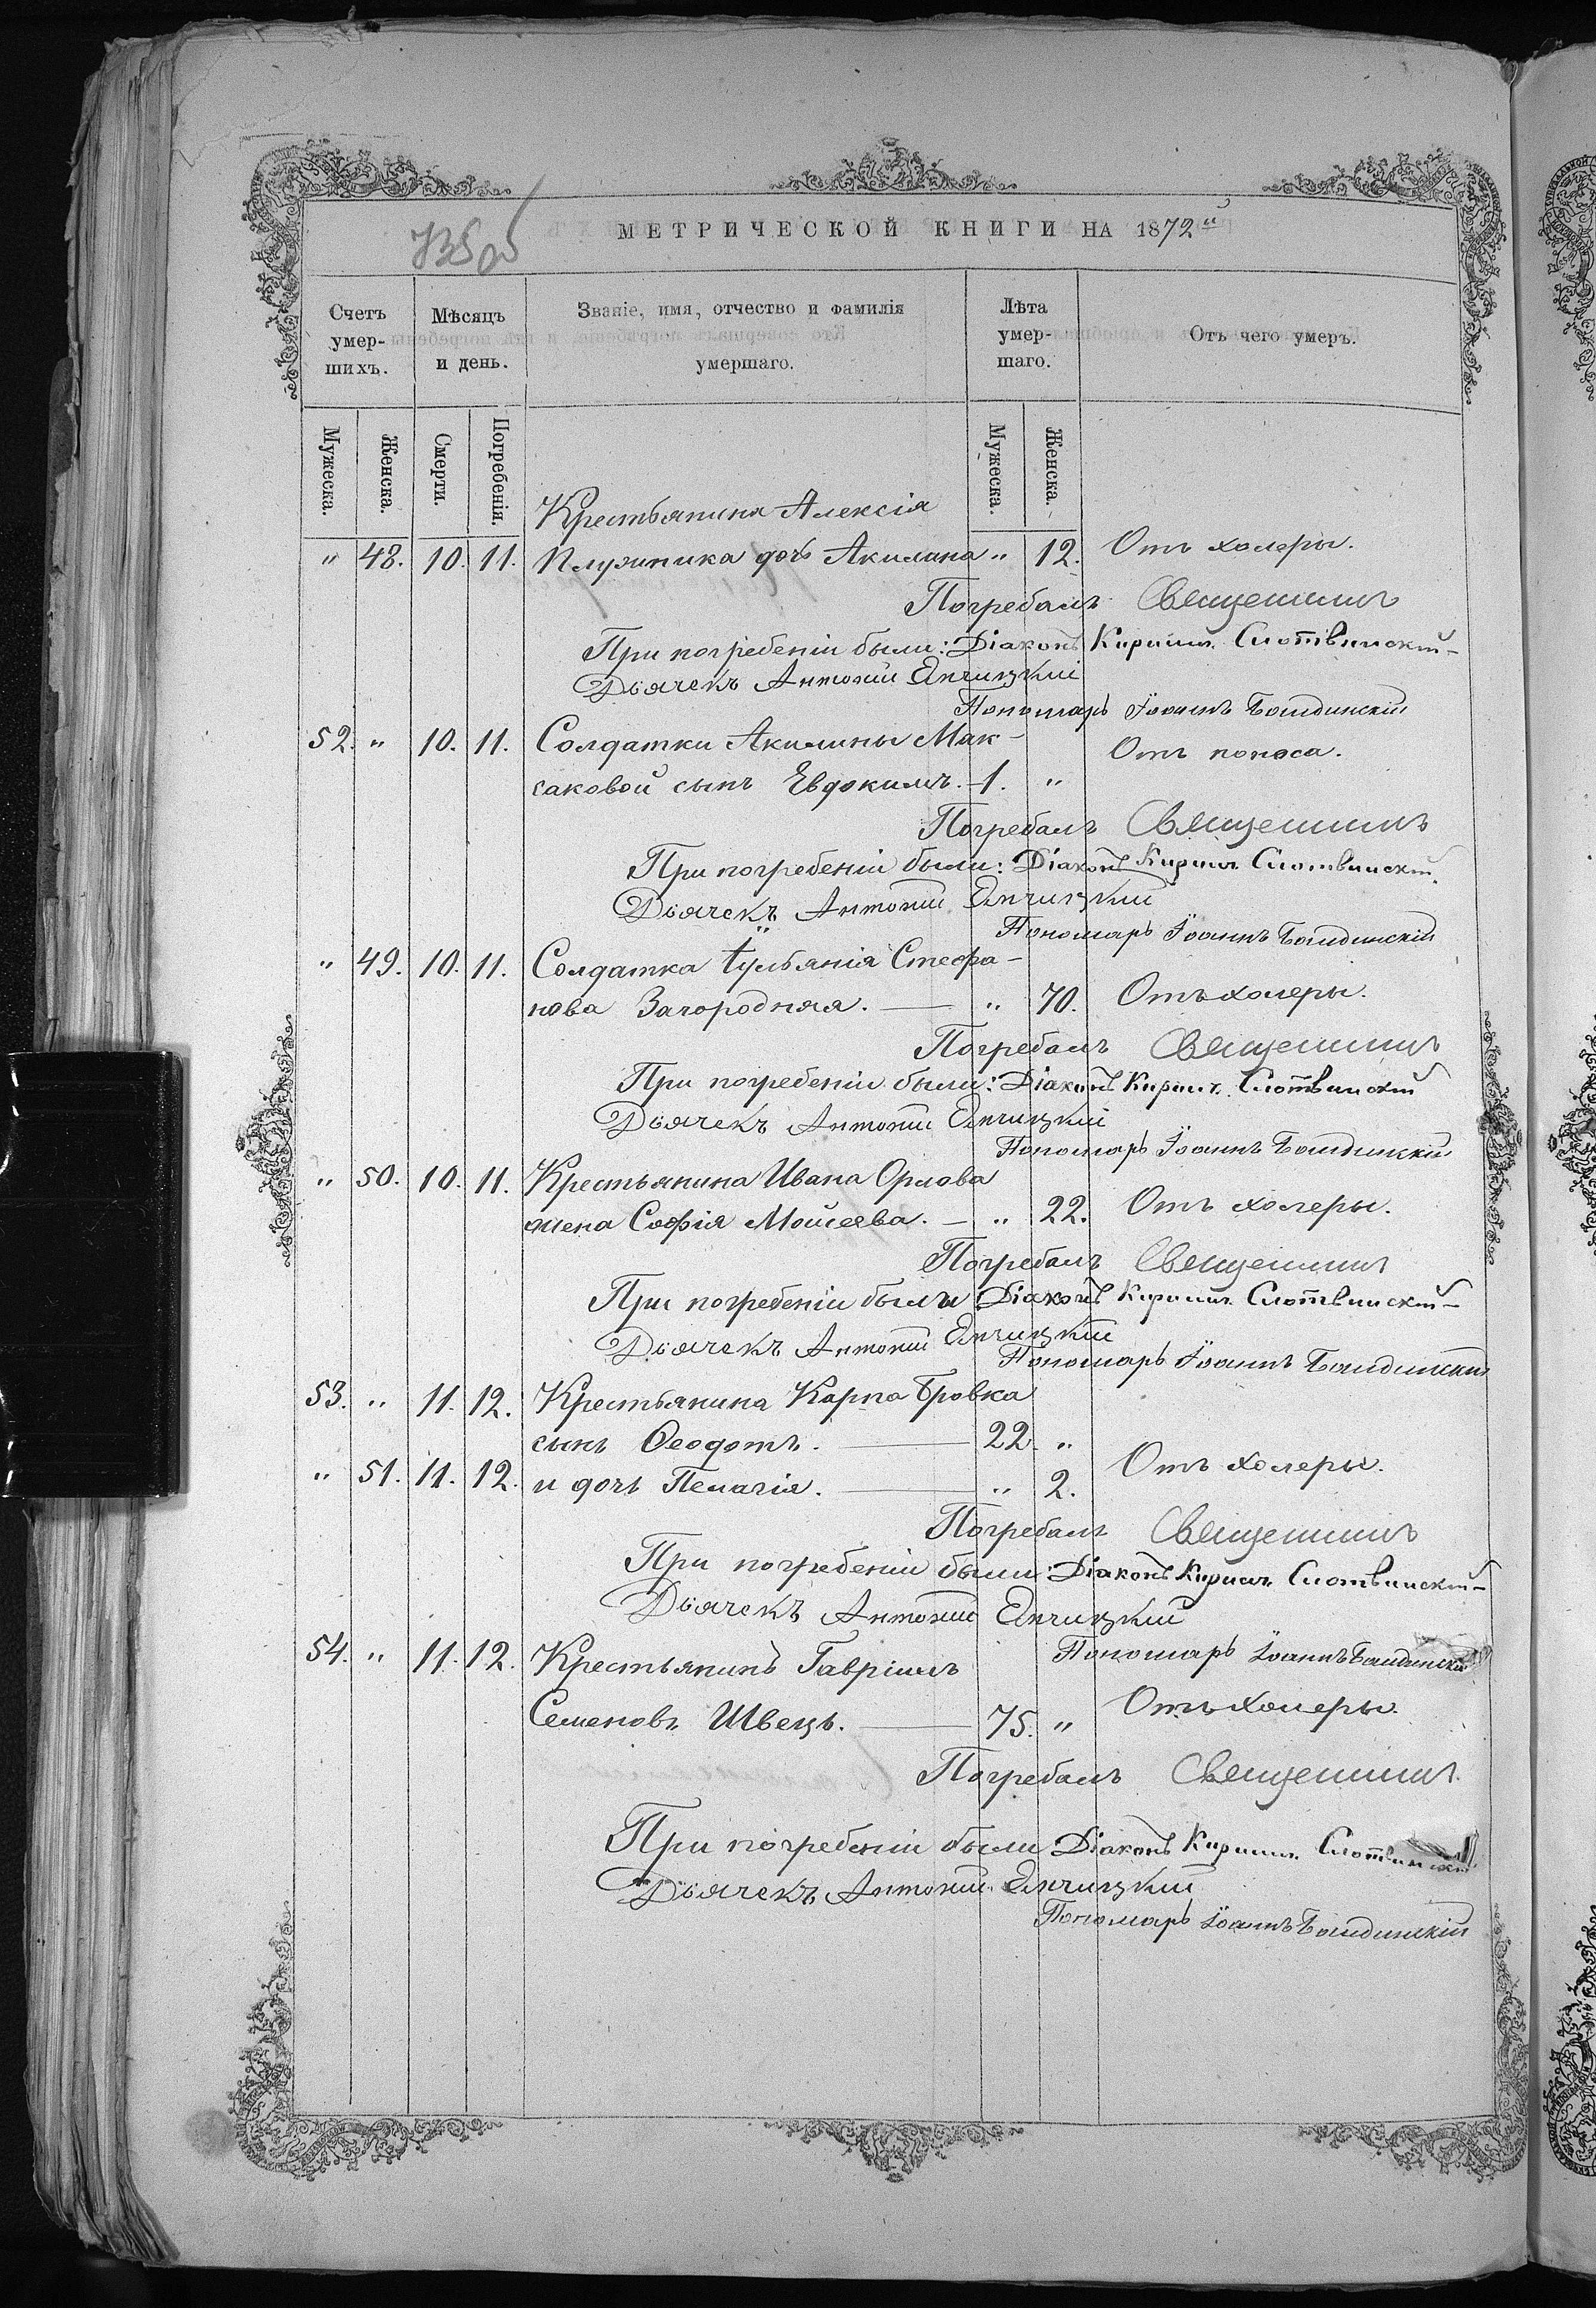 МЕТРИЧЕСКОЙ КНИГИ НА 1872й
Счетъ умер-шихъ.
Мѣсяцъ и день.
Званіе, имя, отчество и фамилія умершаго.
Лѣта умер-шаго.
Отъ чего умеръ.
Мужеска. Женска. Смерти. Погребенія. Мужеска. Женска.
Крестьянина Алексія
" 48. 10. 11. Плужника дочь Акилина " 12. Отъ холеры.
Погребалъ Священникъ
При погребеніи были: Діаконъ Кириллъ Слотвинскій
Дьячекъ Антоній
Пономарь Іоаннъ
52. " 10. 11. Солдатки Акилины Мак-
Отъ поноса.
саковой сынъ Евдокимъ. 1. "
Погребалъ Священникъ
При погребеніи были: Діаконъ Кириллъ Слотвинскій
Дьячекъ Антоній
Пономарь Іоаннъ
" 49. 10. 11. Солдатка Іульянія Стефа-
нова Загородняя. " 70. Отъ холеры.
Погребалъ Священникъ
При погребеніи были: Діаконъ Кириллъ Слотвинскій
Дьячекъ Антоній
Пономарь Іоаннъ
" 50. 10. 11. Крестьянина Ивана Орлова
жена Софія Мойсеева. " 22. Отъ холеры.
Погребалъ Священникъ
При погребеніи были Діаконъ Кириллъ Слотвинскій
Дьячекъ Антоній
Пономарь Іоаннъ
53. " 11. 12. Крестьянина Карпа Бровка
сынъ Ѳеодотъ. 22. "
Отъ холеры.
" 51. 11. 12. и дочь Пелагія. " 2.
Погребалъ Священникъ
При погребеніи были: Діаконъ Кириллъ Слотвинскій
Дьячекъ Антоній
Пономарь Іоаннъ
54. " 11. 12. Крестьянинъ Гавріилъ
Семеновъ Швецъ. 75. " Отъ холеры.
Погребалъ Священникъ
При погребеніи были Діаконъ Кириллъ Слотвинскій
Дьячекъ Антоній
Пономарь Іоаннъ